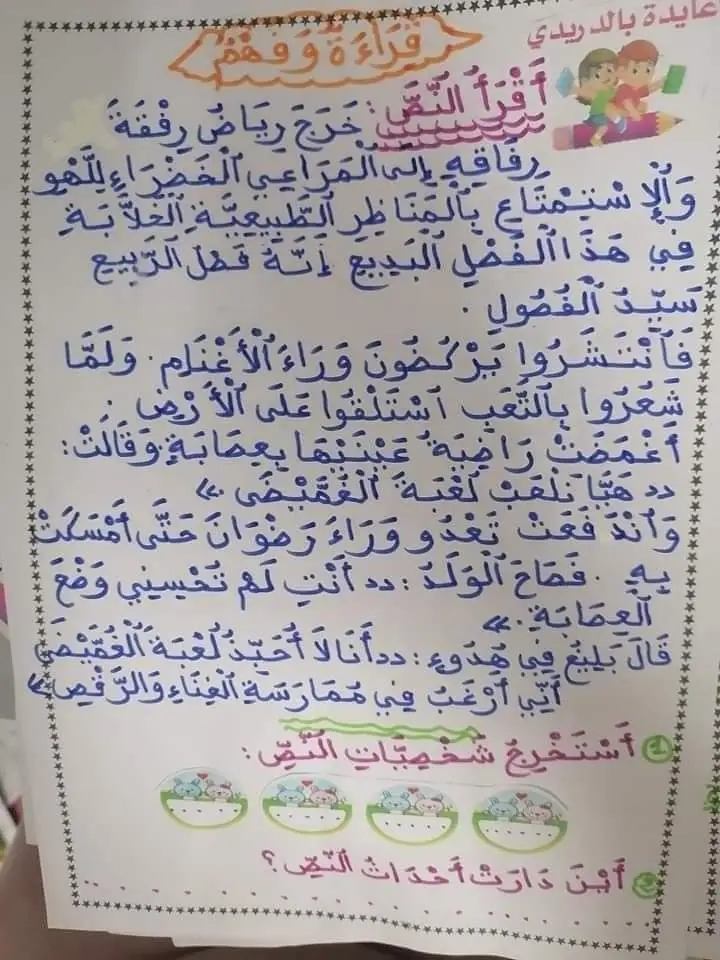 عايدة بالدريدي
قِرَاءَةٌ وَفَهْمٌ
أَقْرَأُ النَّصَّ : خَرَجَ رِيَاضُ رِفْقَةَ
رِفَاقِهِ إِلَى الْمَرَاعِي الْخَضْرَاءِ لِلَّهْوِ
وَالْإِسْتِمْتَاعِ بِالْمَنَاظِرِ الطَّبِيعِيَّةِ الْخَلاَّبَةِ
فِي هَذَا الْفَصْلِ الْبَدِيعِ إِنَّهُ فَصْلُ الرَّبِيعِ
سَيِّدُ الْفُصُولِ .
فَانْتَشَرُوا يَرْكُضُونَ وَرَاءَ الْأَغْنَامِ . وَلَمَّا
شَعُرُوا بِالتَّعَبِ اسْتَلْقُوا عَلَى الْأَرْضِ .
أَغْمَضَتْ رَاضِيَةُ عَيْنَيْهَا بِعِصَابَةٍ وَقَالَتْ :
«هَيَّا نَلْعَبْ لُعْبَةَ الْغُمَّيْضَى »
وَانْدَفَعَتْ تَعْدُو وَرَاءَ رَضْوَانَ حَتَّى أَمْسَكَتْ
بِهِ . فَصَاحَ الْوَلَدُ : «أَنْتِ لَمْ تُحْسِنِي وَضْعَ
الْعِصَابَةِ .»
قَالَ بَلِيغُ فِي هُدُوءٍ : «أَنَا لَا أُحَبِّذُ لُعْبَةَ الْغُمَّيْضَى
أَنِّي أَرْغَبُ فِي مُمَارَسَةِ الْغِنَاءِ وَالرَّقْصِ »
1 أَسْتَخْرِجُ شَخْصِيَّاتِ النَّصِّ :
2 أَيْنَ دَارَتْ أَحْدَاثُ النَّصِّ ؟